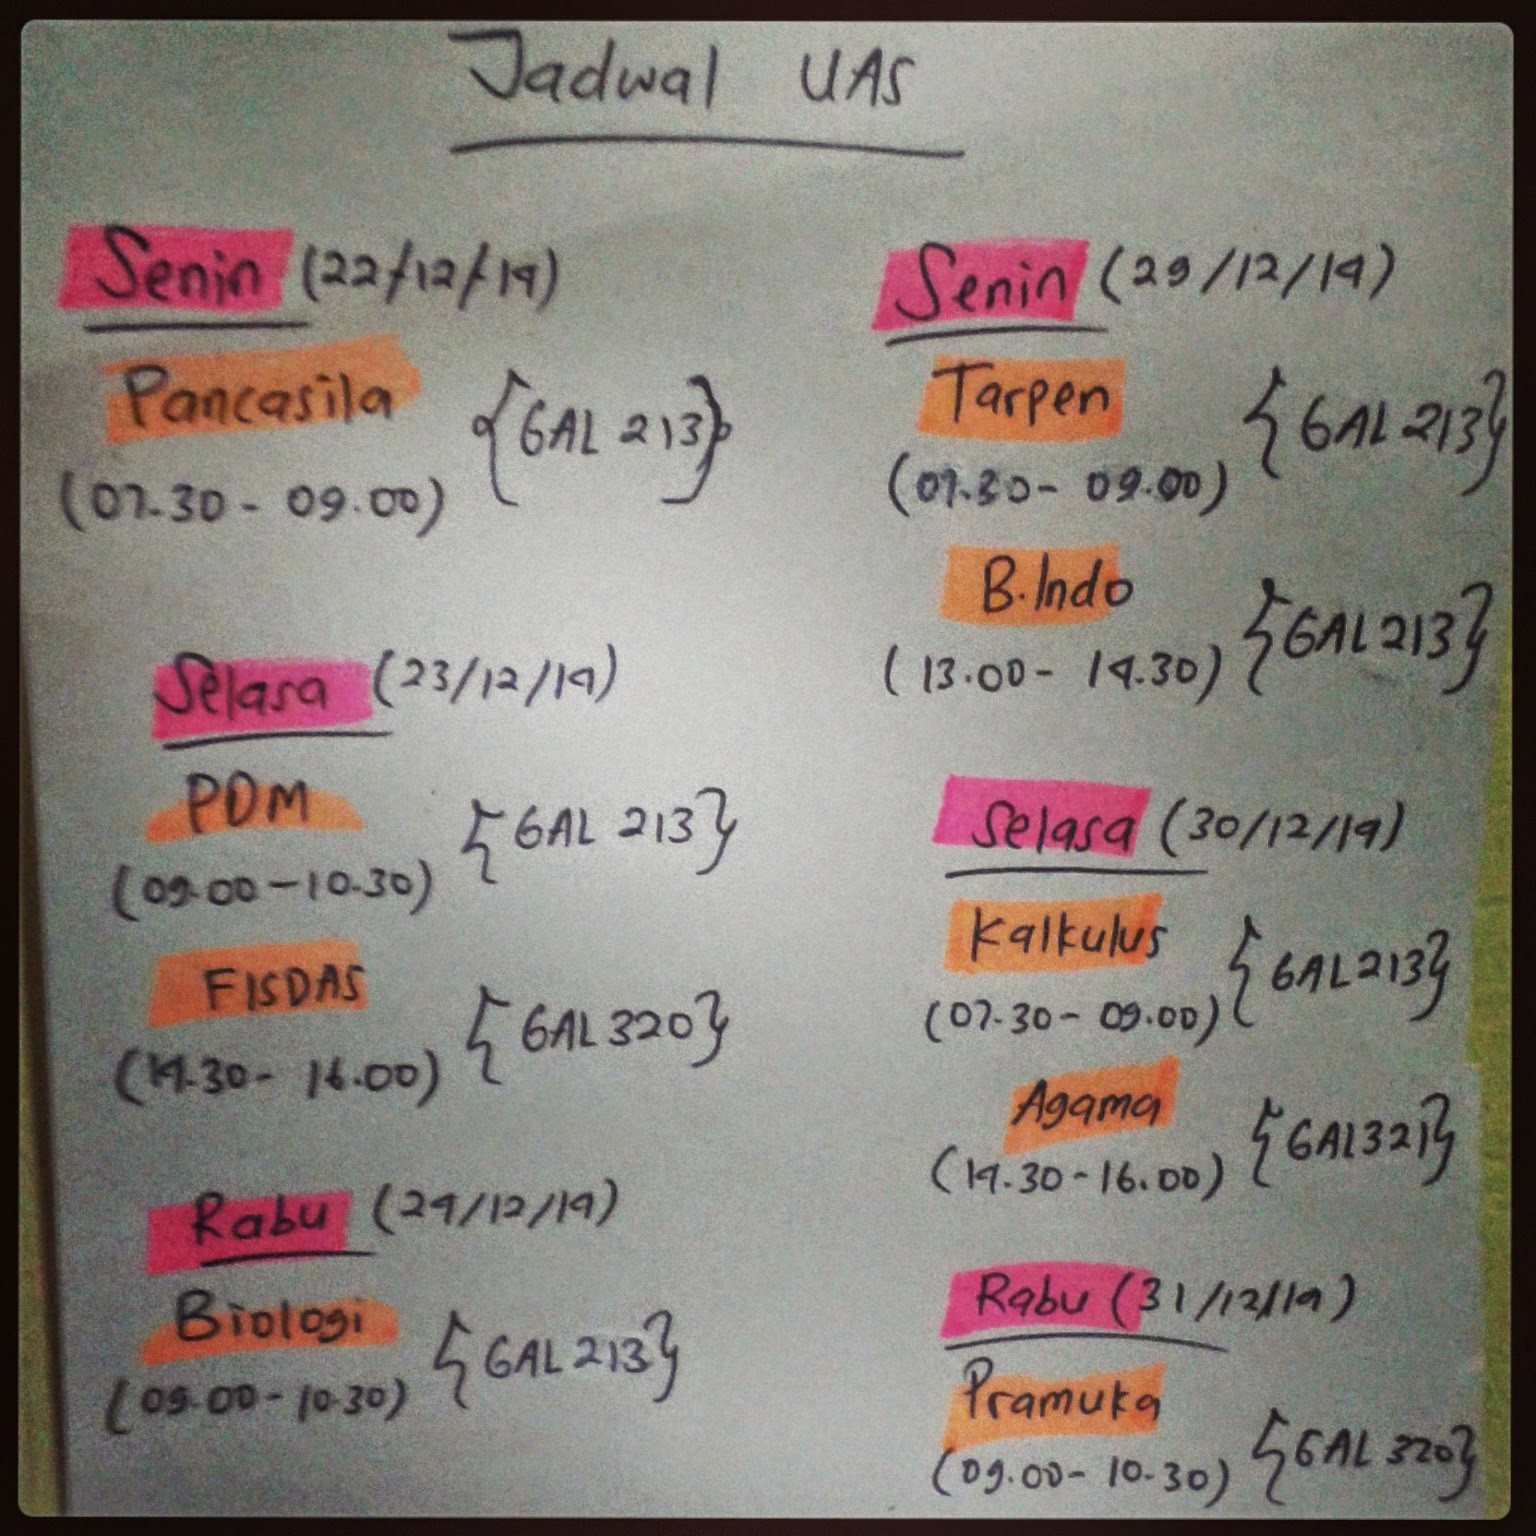 Jadwal UAS
Senin (22/12/14)
Pancasila {GAL 213}
(07.30 - 09.00)
Selasa (23/12/14)
PDM {GAL 213}
(09.00 - 10.30)
FISDAS {GAL 320}
(14.30 - 16.00)
Rabu (24/12/14)
Biologi {GAL 213}
(09.00 - 10.30)
Senin (29/12/14)
Tarpen {GAL 213}
(07.30 - 09.00)
B.Indo {GAL 213}
(13.00 - 14.30)
Selasa (30/12/14)
Kalkulus {GAL 213}
(07.30 - 09.00)
Agama {GAL 321}
(14.30 - 16.00)
Rabu (31/12/14)
Pramuka {GAL 320}
(09.00 - 10.30)